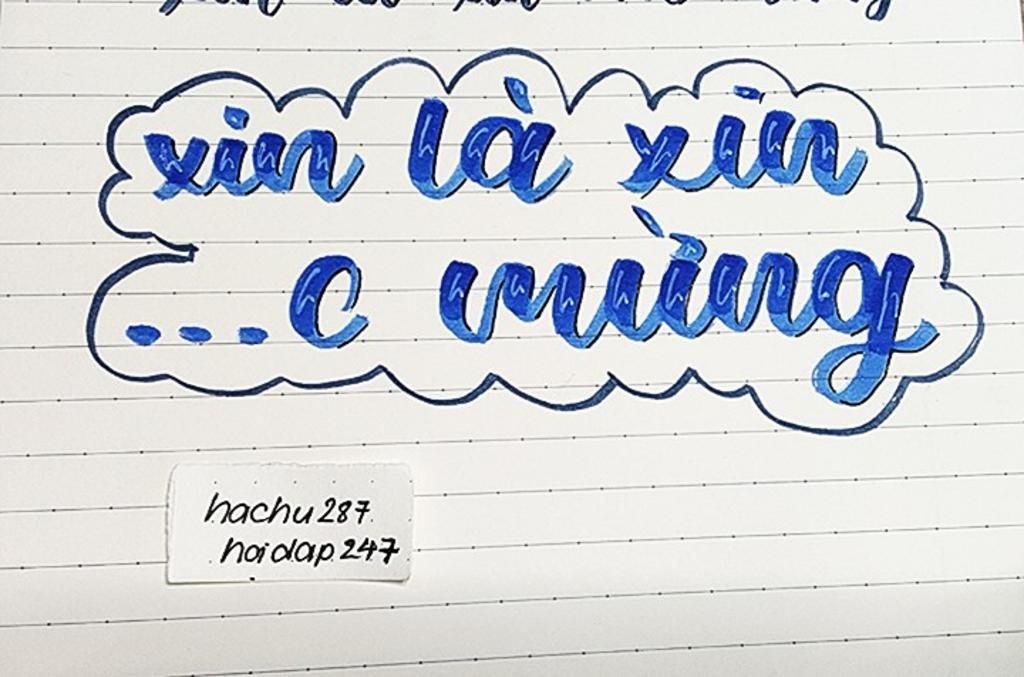 xin là xin
...c mừng
hachu287
hoidap247